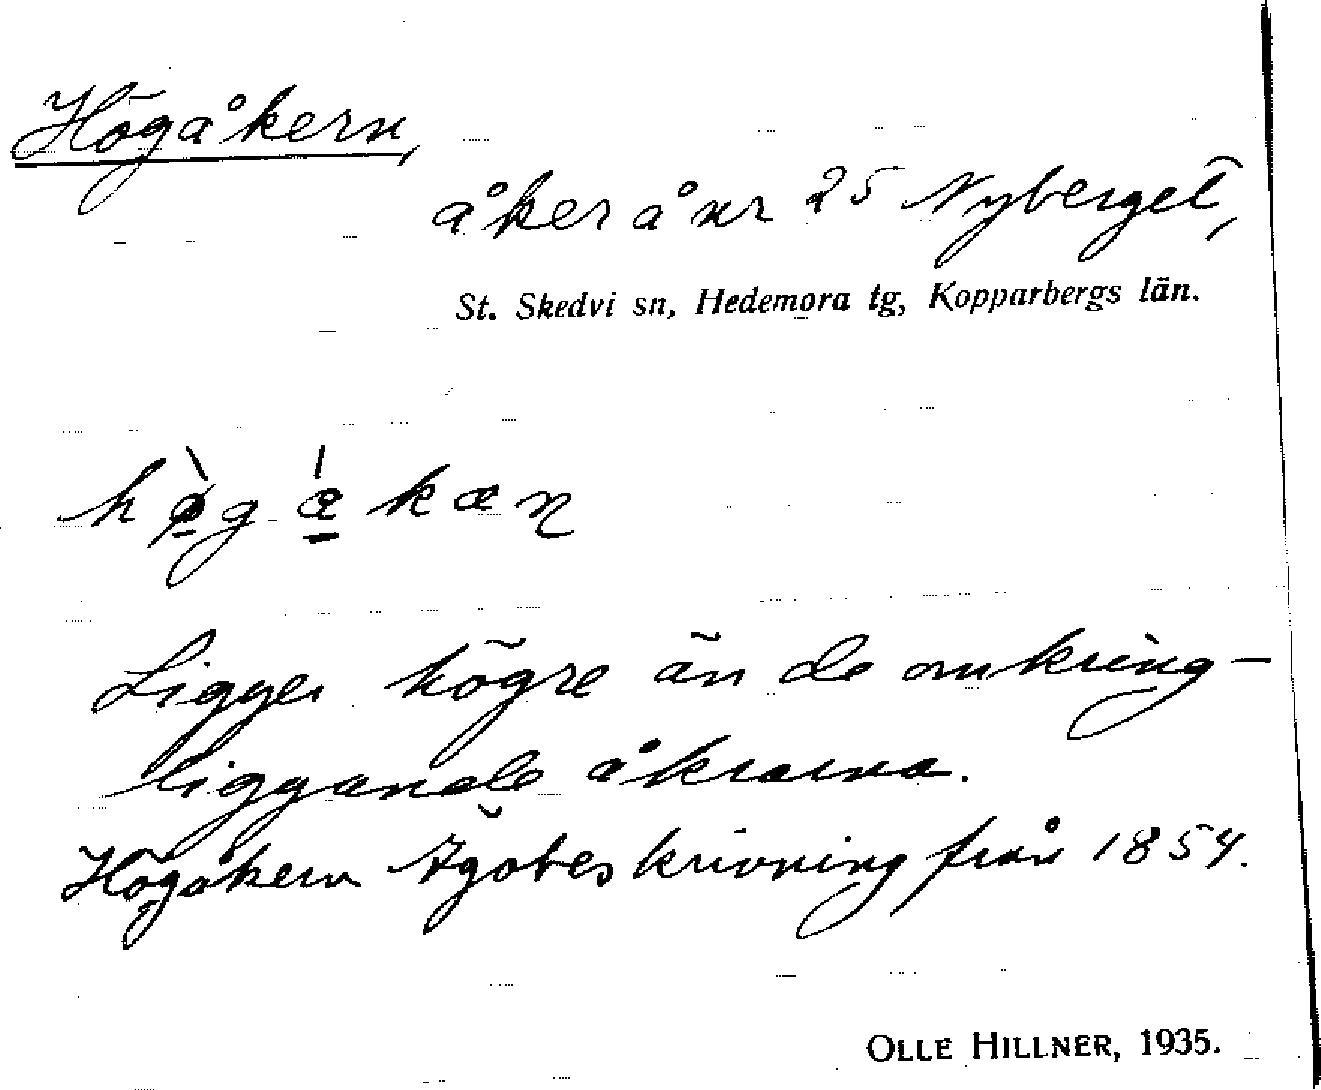 Högåkern,
åker å nr 25 Nyberget,
St. Skedvi sn, Hedemora tg, Kopparbergs län.
Ligger högre än de omkring-
liggande åkrarna.
Högåkern Ägobeskrivning från 1854.
OLLE HILLNER, 1935.